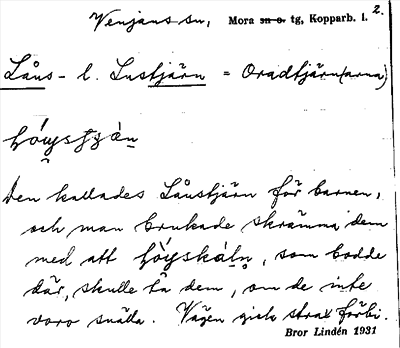 Venjans sn, Mora sn o. tg, Kopparb. l. 2.
Låns- l. Lustjärn = Oradtjärn(arna)
Den kallades Lånstjärn för barnen,
och man brukade skrämma dem
med att
, som bodde
där, skulle ta dem, om de inte
voro snälla. Vägen gick strax förbi.
Bror Lindén 1931